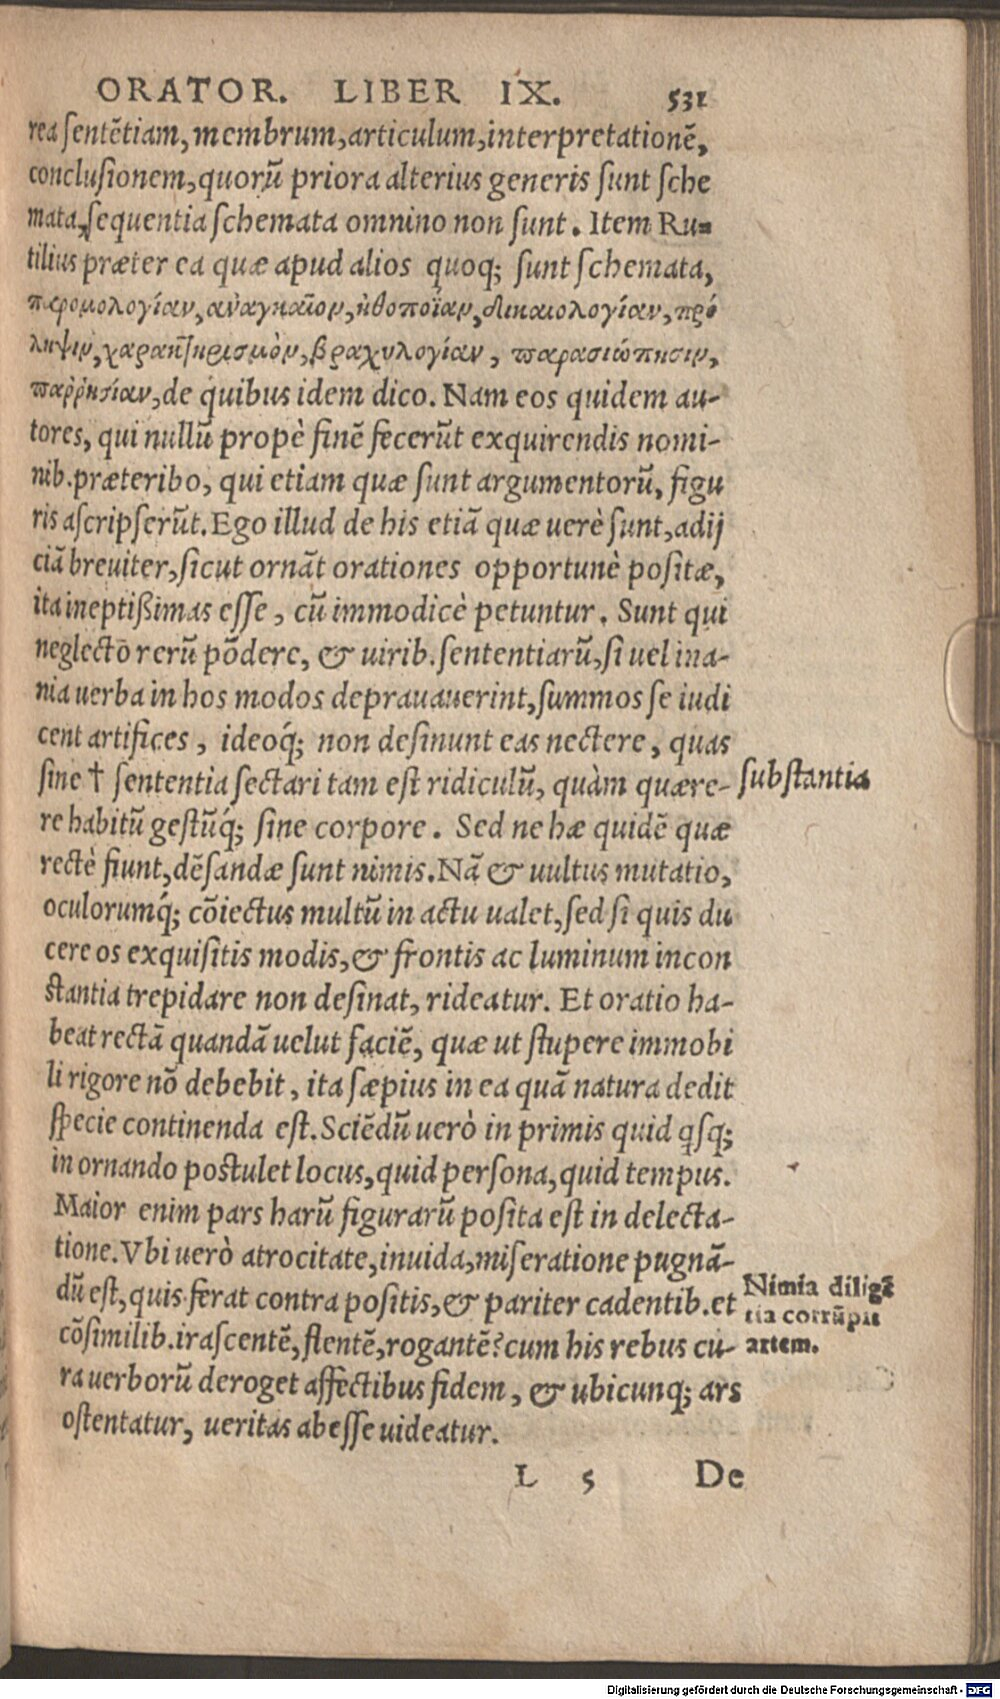 ORATOR. LIBER IX. 531
rea sentẽtiam, membrum, articulum, interpretationẽ,
conclusionem, quorũ priora alterius generis sunt sche
mata, sequentia schemata omnino non sunt. Item Ru-
tilius præter ea quæ apud alios quoq; sunt schemata,
παρομολογίαν, ἀναγκαῖον, ἠθοποΐαν, δικαιολογίαν, πρό
ληψιν, χαρακτηρισμὸν, βραχυλογίαν, παρασιώπησιν,
παῤῥησίαν, de quibus idem dico. Nam eos quidem au-
tores, qui nullũ propè finẽ fecerũt exquirendis nomi-
nib. præteribo, qui etiam quæ sunt argumentorũ, figu
ris ascripserũt. Ego illud de his etiã quæ uerè sunt, adij
ciã breuiter, sicut ornãt orationes opportunè positæ,
ita ineptißimas esse, cũ immodicè petuntur. Sunt qui
neglecto rerũ põdere, & uirib. sententiarũ, si uel ina-
nia uerba in hos modos deprauauerint, summos se iudi
cent artifices, ideoq́; non desinunt eas nectere, quas
sine † sententia sectari tam est ridiculũ, quàm quære- substantia
re habitũ gestũq́; sine corpore. Sed ne hæ quidẽ quæ
rectè fiunt, dẽsandæ sunt nimis. Nã & uultus mutatio,
oculorumq́; cõiectus multũ in actu ualet, sed si quis du
cere os exquisitis modis, & frontis ac luminum incon
stantia trepidare non desinat, rideatur. Et oratio ha-
beat rectã quandã uelut faciẽ, quæ ut stupere immobi
li rigore nõ debebit, ita sæpius in ea quã natura dedit
specie continenda est. Sciẽdũ uerò in primis quid qsq;
in ornando postulet locus, quid persona, quid tempus.
Maior enim pars harũ figurarũ posita est in delecta-
tione. Vbi uerò atrocitate, inuida, miseratione pugnã-
dũ est, quis ferat contra positis, & pariter cadentib. et
cõsimilib. irascentẽ, flentẽ, rogantẽ? cum his rebus cu-
ra uerborũ deroget affectibus fidem, & ubicunq; ars
ostentatur, ueritas abesse uideatur.
Nimia diligẽ
tia corrũpit
artem.
L 5 De
Digitalisierung gefördert durch die Deutsche Forschungsgemeinschaft - DFG